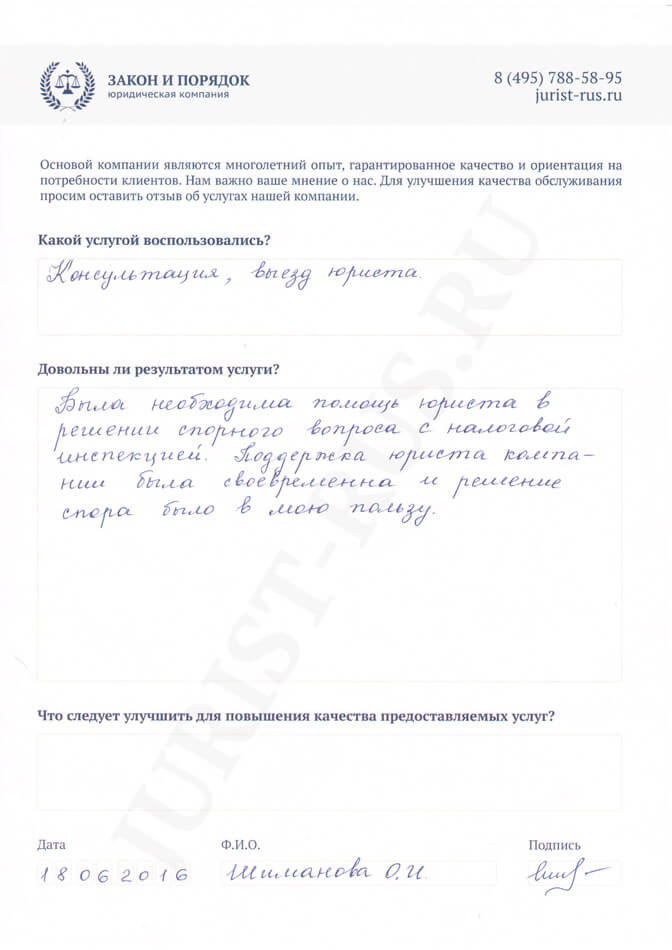 ЗАКОН И ПОРЯДОК
юридическая компания
8 (495) 788-58-95
jurist-rus.ru
Основой компании являются многолетний опыт, гарантированное качество и ориентация на
потребности клиентов. Нам важно ваше мнение о нас. Для улучшения качества обслуживания
просим оставить отзыв об услугах нашей компании.
Какой услугой воспользовались?
Консультация, выезд юриста.
Довольны ли результатом услуги?
Была необходима помощь юриста в
решении спорного вопроса с налоговой
инспекцией. Поддержка юриста компа-
нии была своевременна и решение
спора было в мою пользу.
Что следует улучшить для повышения качества предоставляемых услуг?
Дата
Ф.И.О.
Подпись
18 06 2016
Шиманова О.И.
JURIST-RUS.RU